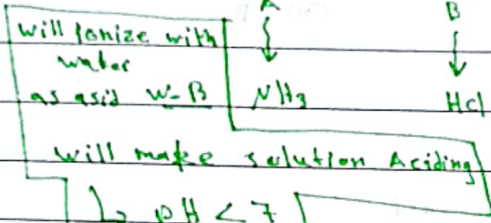 A B
will Ionize with
water
as asid W-B NH3 HCl
will make solution Aciding
pH < 7